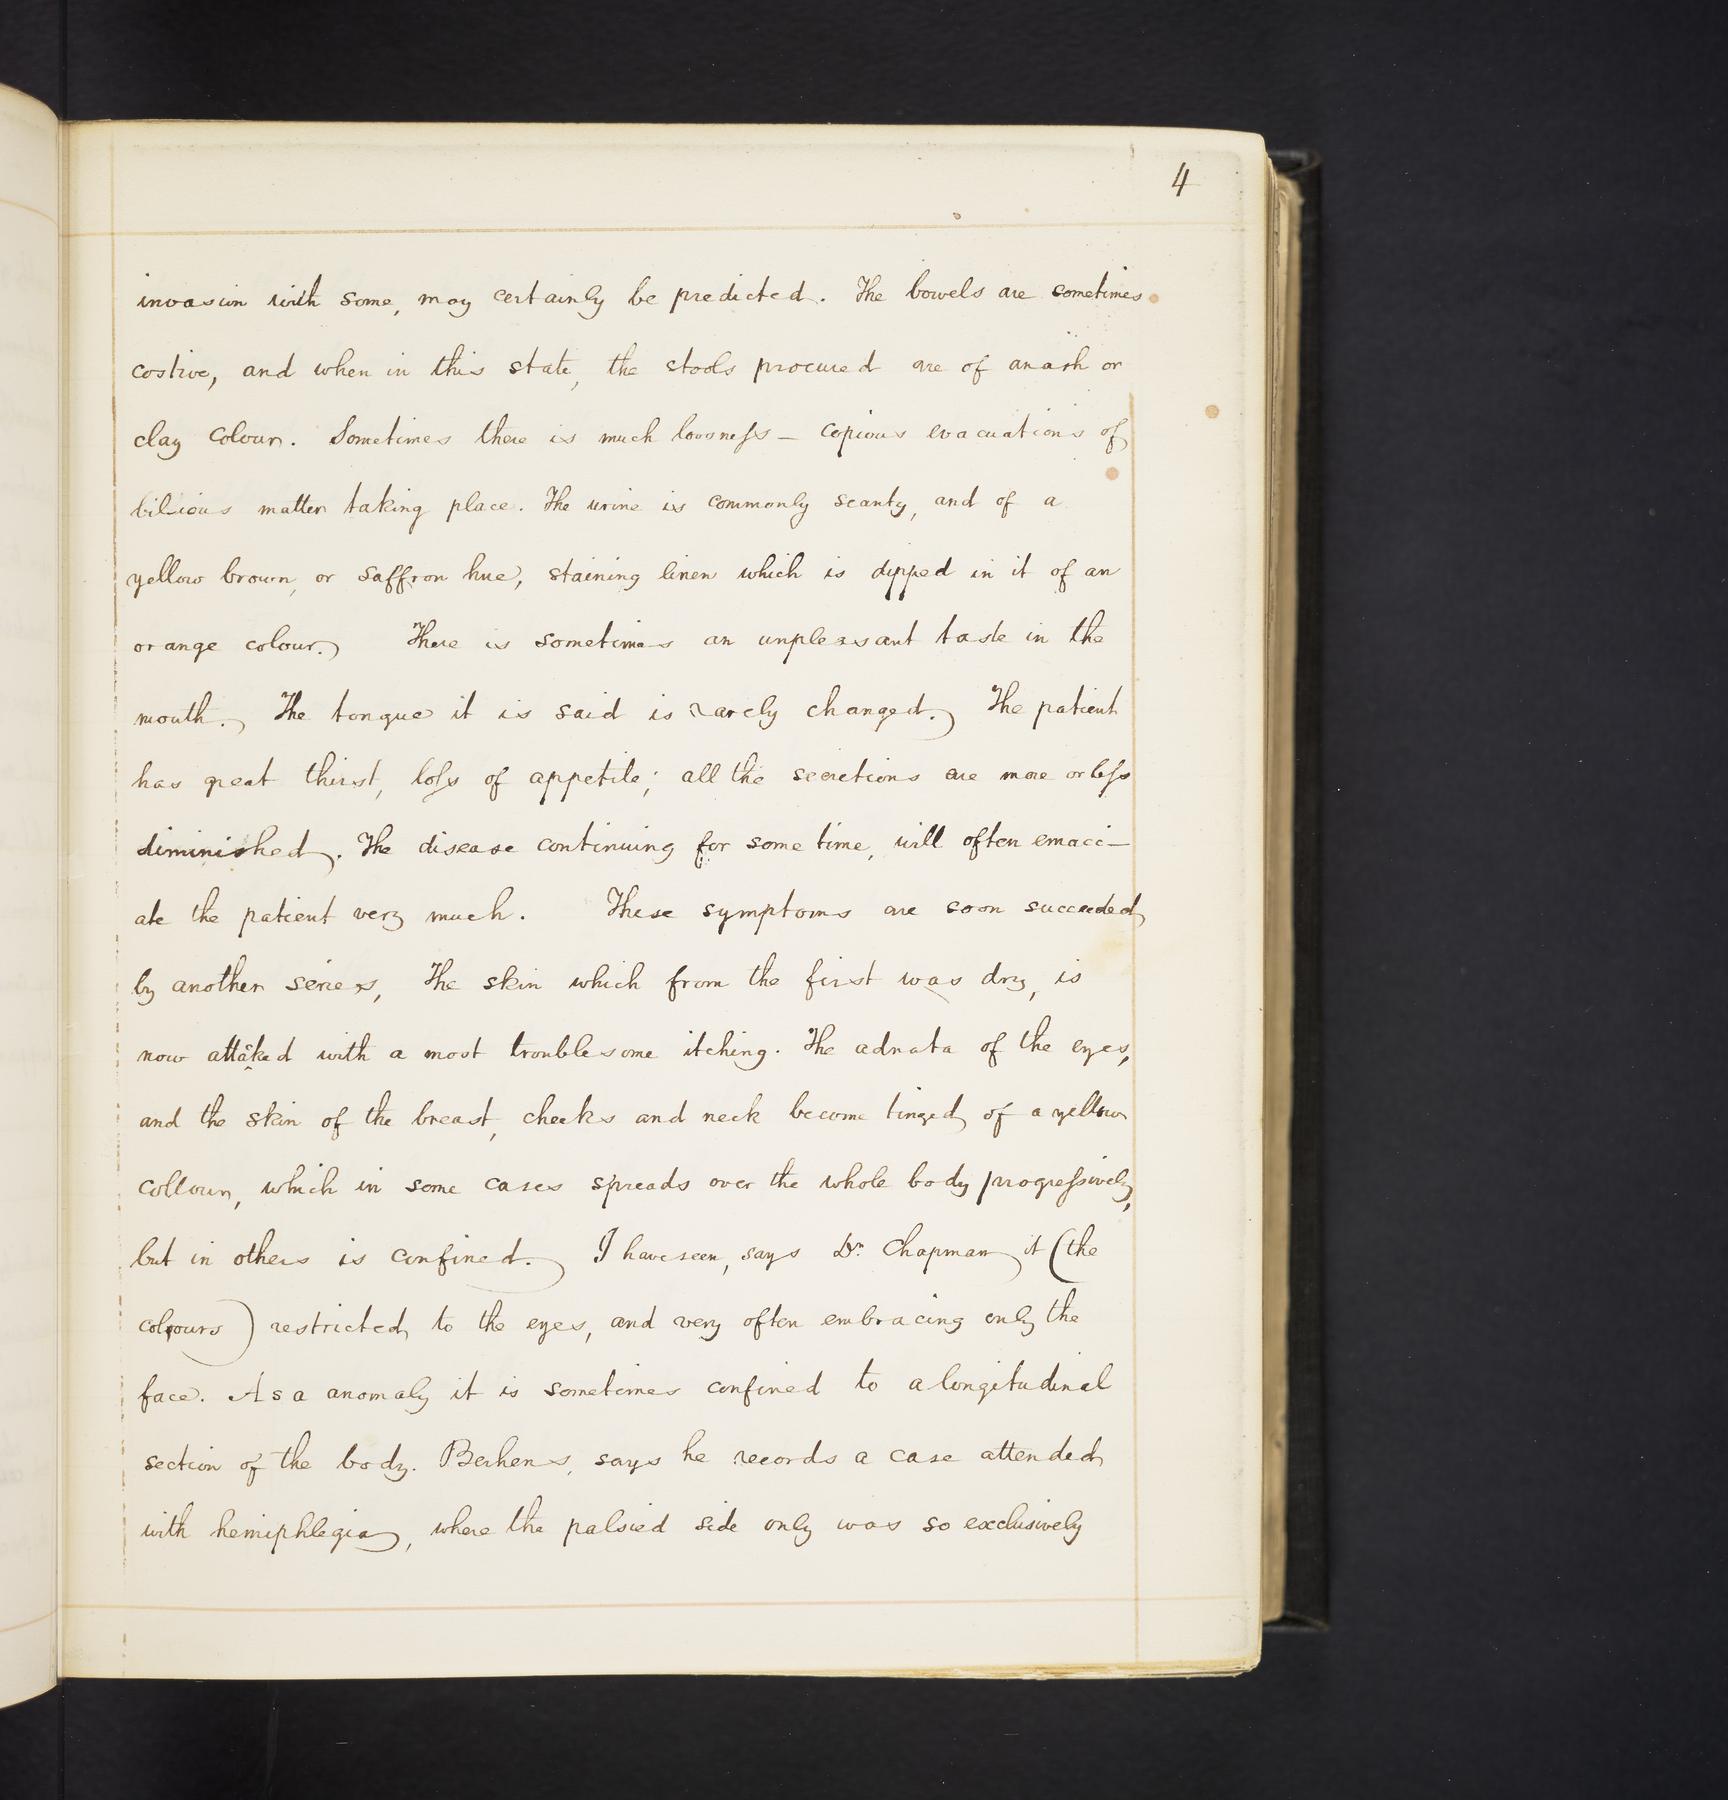 4
invasion with some, may certainly be predicted. The bowels are sometimes
costive, and when in this state, the stools procured are of an ash or
clay colour. Sometimes there is much loosness — copious evacuations of
bilious matter taking place. The urine is commonly scanty, and of a
yellow brown, or saffron hue, staining linen which is dipped in it of an
orange colour. There is sometimes an unpleasant taste in the
mouth. The tongue it is said is rarely changed. The patient
has great thirst, loss of appetite; all the secretions are more or less
diminished. The disease continuing for some time, will often emaci–
ate the patient very much. These symptoms are soon succeeded
by another series, The skin which from the first was dry, is
now attacked with a most troublesome itching. The adnata of the eyes,
and the skin of the breast, cheeks and neck become tinged of a yellow
collour, which in some cases spreads over the whole body progressively,
but in others is confined. I have seen, says Dr. Chapman it (the
colours) restricted to the eyes, and very often embracing only the
face. As a anomaly it is sometimes confined to a longitudinal
section of the body. Berhens, says he records a case attended
with hemiphlegia, where the palsied side only was so exclusively